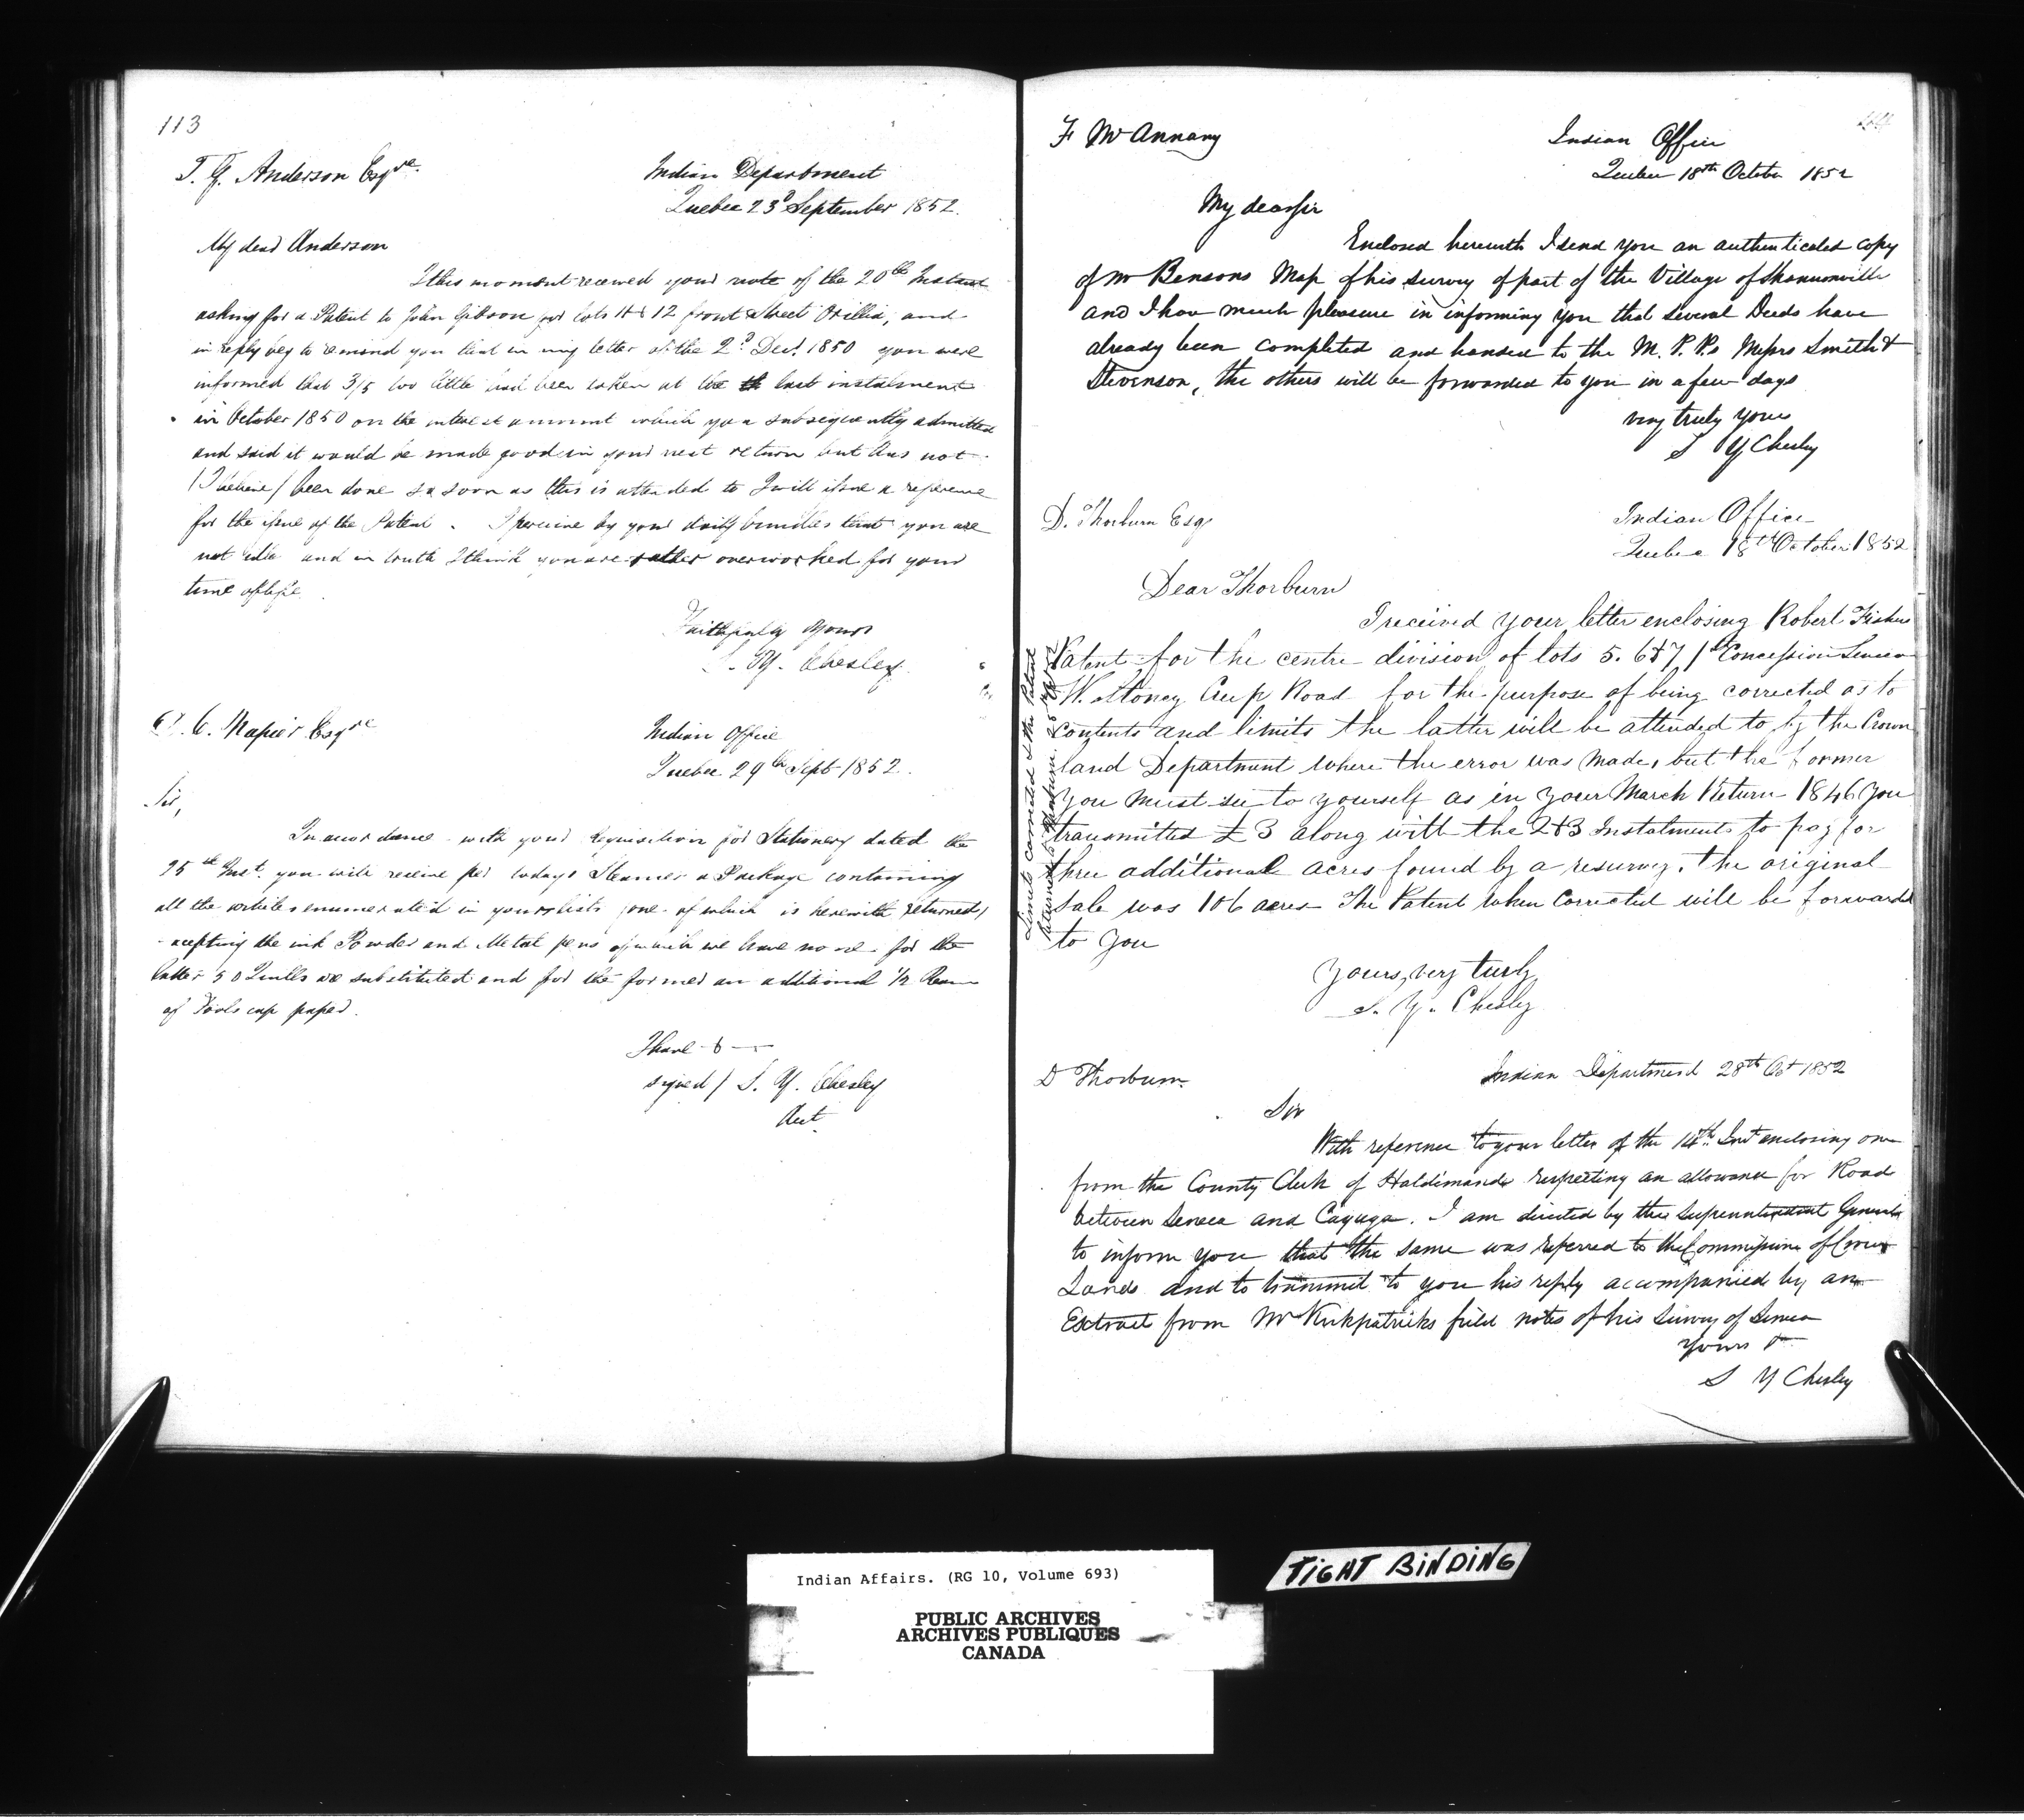 113
T. G. Anderson Esqre
Indian Department
Quebec 23d September 1852.
My dear Anderson
I this moment received your note of the 20th Instant
asking for a Patent to John Gibson for lots 11 & 12 front Street Orillia, and
in reply beg to remind you that in my letter of the 2d Decr. 1850 you were
informed that 3/5 too little had been taken at the last instalment
in October 1850 on the interest amount which you subsequently admitted
and said it would be made good in your next return but has not
(I believe) been done so soon as this is attended to I will issue a reference
for the issue of the Patent. I perceive by your daily bundles that you are
not idle and in truth I think you are rather overworked for your
time of life.
Faithfully Yours
S. Y. Chesley
D. C. Napier Esqre
Indian Office
Quebec 29th Sept 1852.
Sir,
In accordance with your requisition for Stationery dated the
25th Inst. you will receive per todays Steamer a Package containing
all the articles enumerated in your lists (one of which is herewith returned)
excepting the ink Powder and Metal pens of which we have none for the
latter 50 Quills are substituted and for the former an additional 1/2 Ream
of Foolscap paper.
I have &
signed / S. Y. Chesley
Act.
F McAnnany
Indian Office
Quebec 18th October 1852
My dear Sir
Enclosed herewith I send you an authenticated copy
of Mr Bensons Map of his survey of part of the Village of Shannonville
and I have much pleasure in informing you that several Deeds have
already been completed and handed to the M. P. P.s Messrs Smith &
Stevenson, the others will be forwarded to you in a few days
very truly yours
S Y Chesley
D. Thorburn Esq
Indian Office
Quebec 18th October 1852
Dear Thorburn
I received your letter enclosing Robert Fishers
Patent for the centre division of lots 5. 6 & 7 1st Concession Seneca
W. Stoney Creek Road for the purpose of being corrected as to
contents and limits the latter will be attended to by the Crown
land Department where the error was made, but the former
you must see to yourself as in your March Return 1846 you
transmitted £3 along with the 2 & 3 Instalments to pay for
three additional acres found by a resurvey, the original
Sale was 106 acres The Patent when corrected will be forwarded
to you
Limits corrected & the Patent
returned to Thorburn
Yours, very truly
S. Y. Chesley
D Thorburn.
Indian Department 28th Oct 1852
Sir
With reference to your letter of the 14th Inst enclosing one
from the County Clerk of Haldimand respecting an allowance for Road
between Seneca and Cayuga. I am directed by the Superintendent General
to inform you that the same was referred to the Commissioner of Crown
Lands and to transmit to you his reply accompanied by an
Extract from Mr Kirkpatricks field notes of his Survey of Seneca
Yours &
S Y Chesley
Indian Affairs. (RG 10, Volume 693)
PUBLIC ARCHIVES
ARCHIVES PUBLIQUES
CANADA
TIGHT BINDING